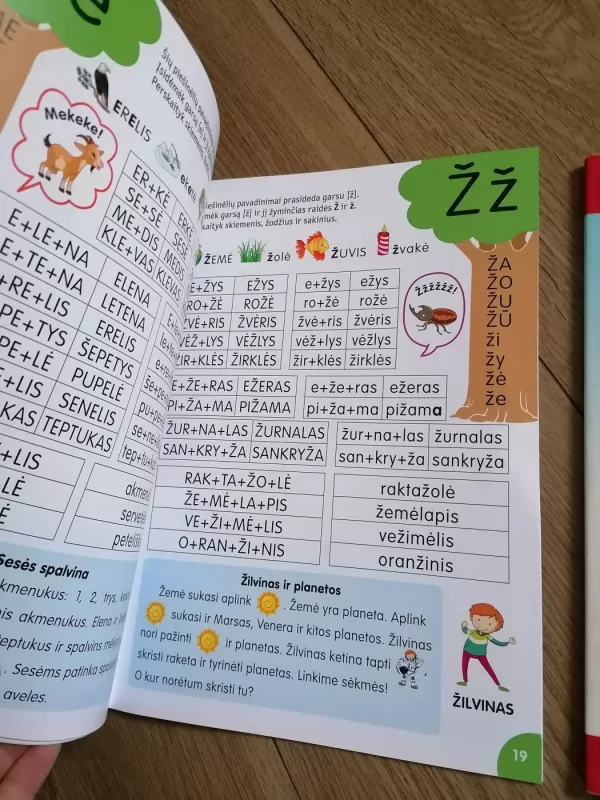 Mekeke!
ERELIS
ER+KĖ
SE+SĖ
ME+DIS
KLE+VAS KLEVAS
E+LE+NA ELENA
E+TE+NA LETENA
RE+LIS ERELIS
PE+TYS ŠEPETYS
PE+LĖ PUPELĖ
LIS SENELIS
KAS TEPTUKAS
+LIS
LĖ
Ė
akmenė
servetė
peteliš
Sesės spalvina
akmenukus: 1, 2, trys,
nis akmenukus. Elena ir
teptukus ir spalvins
. Sesėms patinka
aveles.
Žž
iešinėlių pavadinimai prasideda garsu [ž].
mėk garsą [ž] ir jį žyminčias raides Ž ir ž.
kaityk skiemenis, žodžius ir sakinius.
ŽEMĖ žolė ŽUVIS žvakė
E+ŽYS EŽYS e+žys ežys
RO+ŽĖ ROŽĖ ro+žė rožė
ŽVĖ+RIS ŽVĖRIS žvė+ris žvėris
VĖŽ+LYS VĖŽLYS vėž+lys vėžlys
ŽIR+KLĖS ŽIRKLĖS žir+klės žirklės
Žžžžžž!
ŽA
ŽO
ŽU
ŽŪ
ži
žy
žė
že
E+ŽE+RAS EŽERAS e+že+ras ežeras
PI+ŽA+MA PIŽAMA pi+ža+ma pižama
ŽUR+NA+LAS ŽURNALAS žur+na+las žurnalas
SAN+KRY+ŽA SANKRYŽA san+kry+ža sankryža
RAK+TA+ŽO+LĖ raktažolė
ŽE+MĖ+LA+PIS žemėlapis
VE+ŽI+MĖ+LIS vežimėlis
O+RAN+ŽI+NIS oranžinis
Žilvinas ir planetos
Žemė sukasi aplink . Žemė yra planeta. Aplink
sukasi ir Marsas, Venera ir kitos planetos. Žilvinas
nori pažinti ir planetas. Žilvinas ketina tapti ,
skristi raketa ir tyrinėti planetas. Linkime sėkmės!
O kur norėtum skristi tu?
ŽILVINAS
19